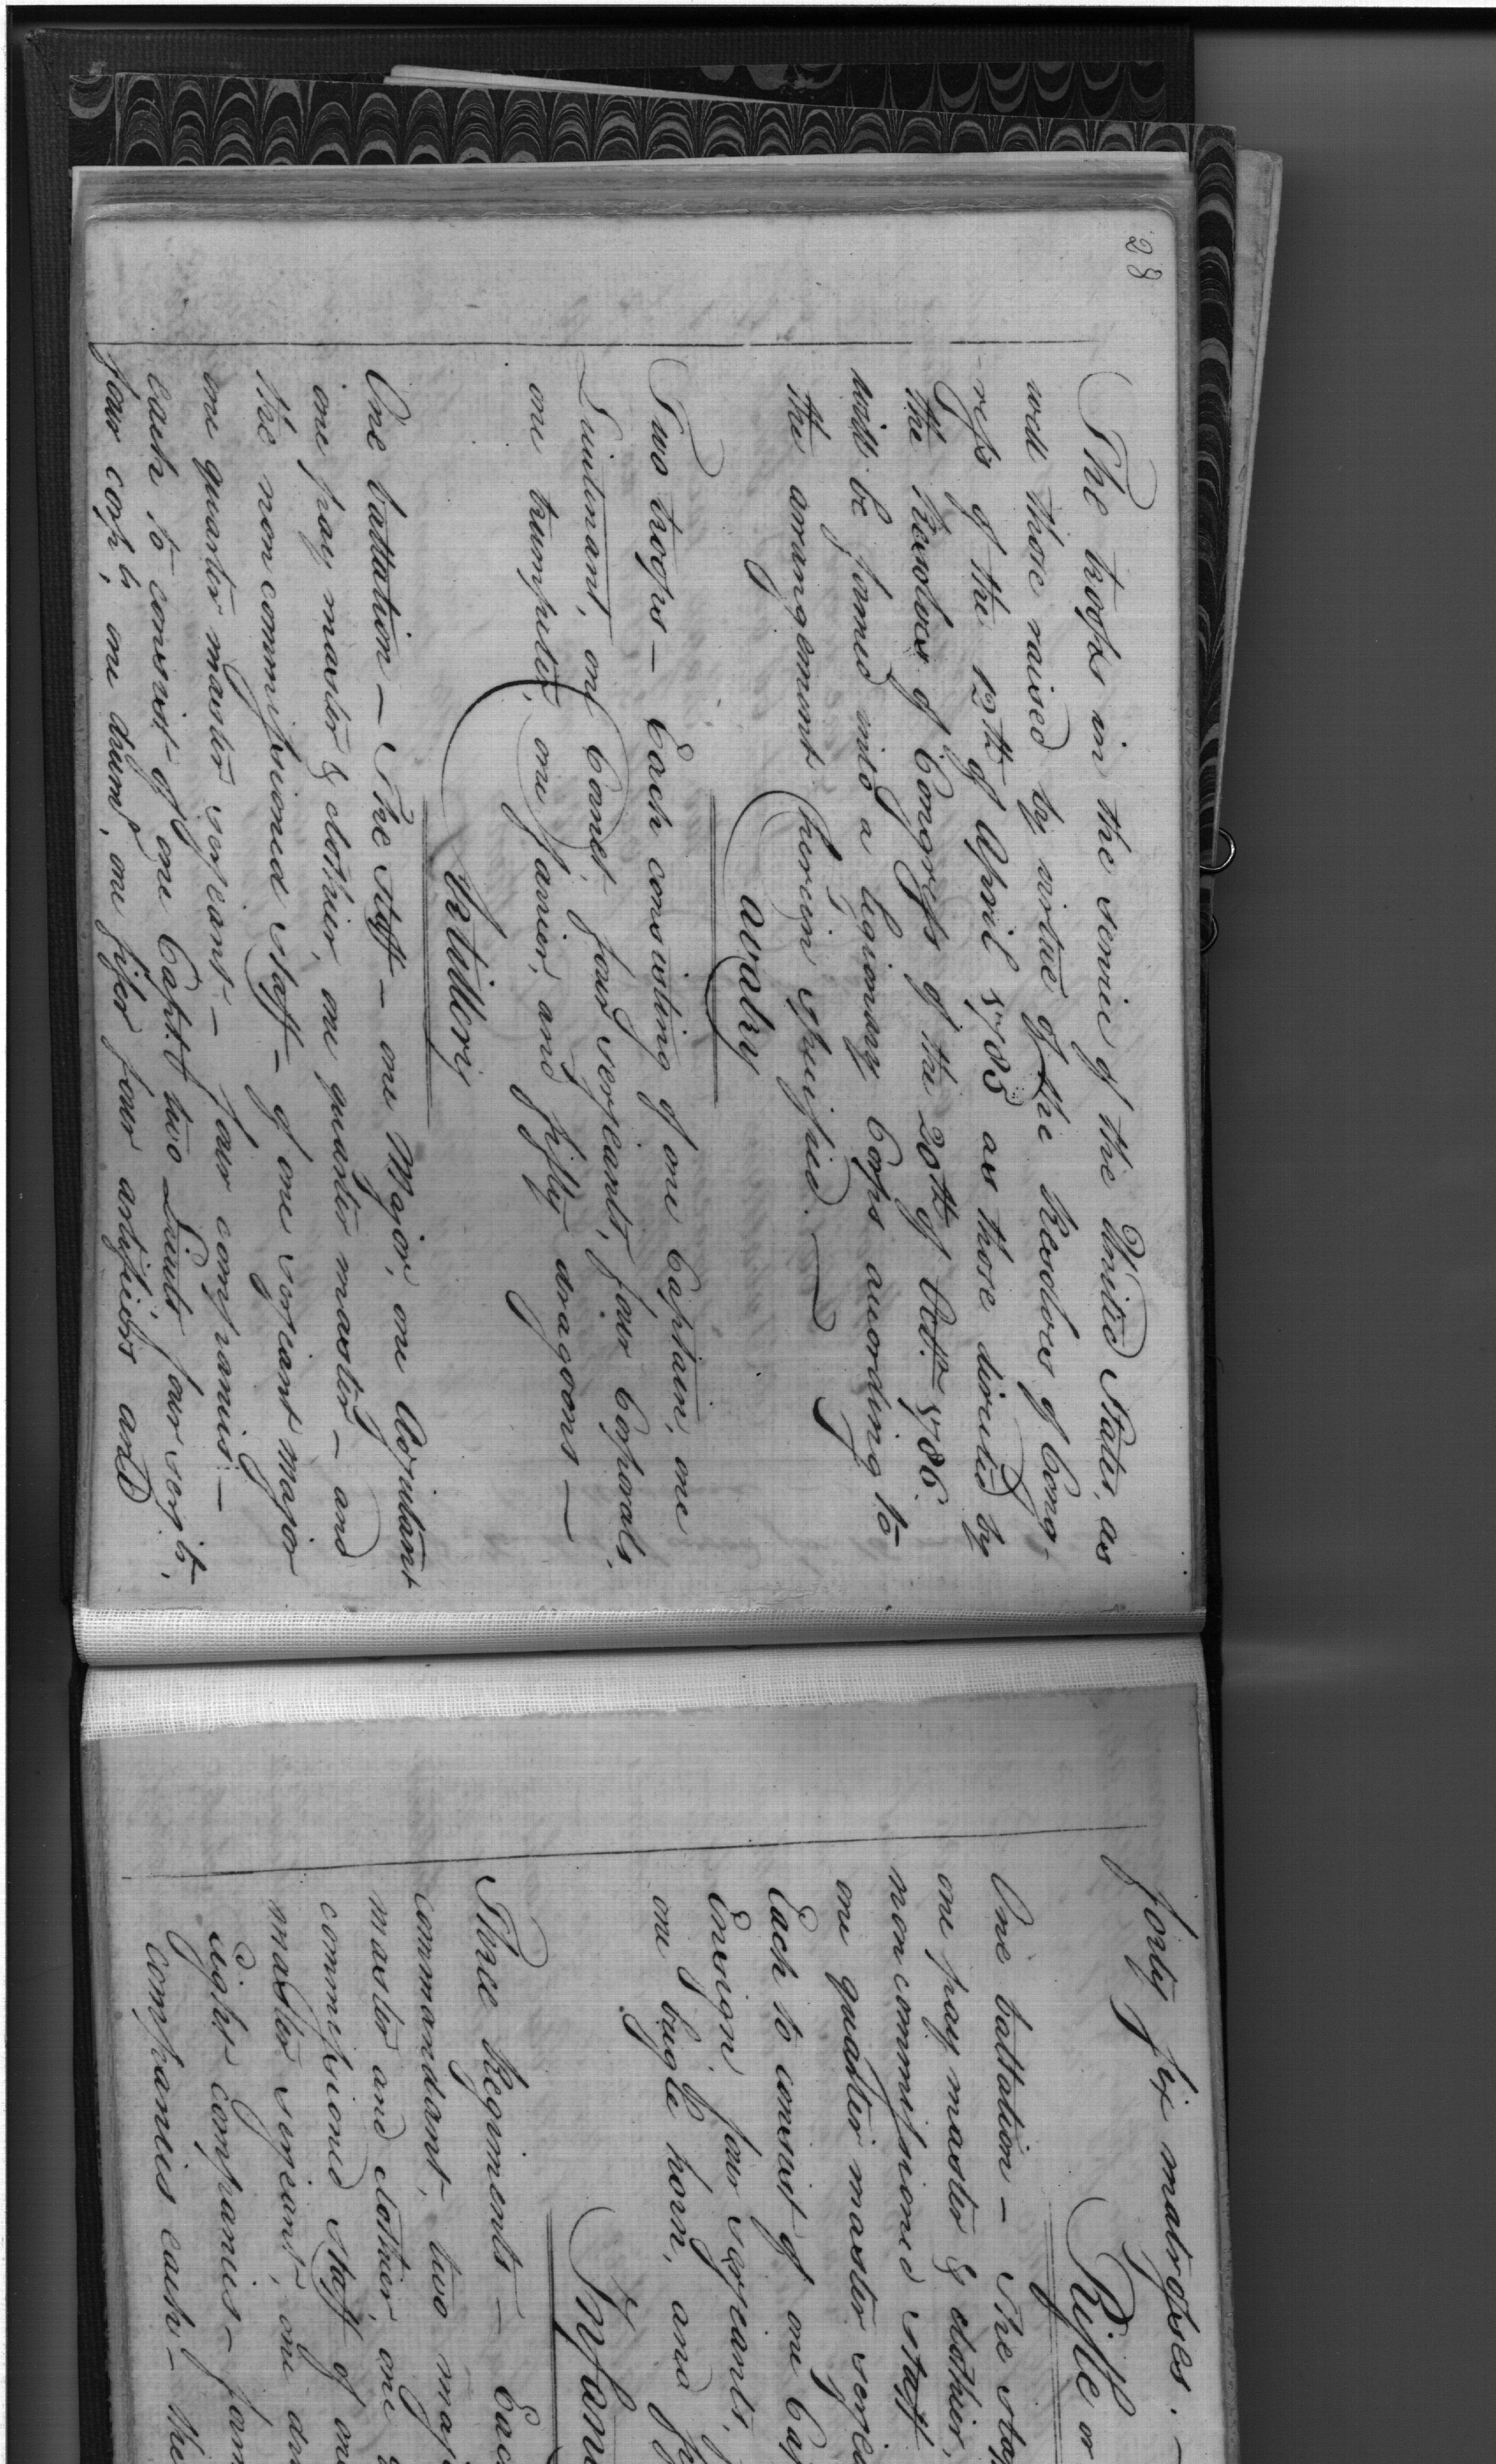 28
The troops in the service of the United States, as
well those raised by virtue of the Resolves of Cong-
-ress of the 12th of April 1785 as those directed by
the Resolves of Congress of the 20th of Octr 1786.
will be formed into a legionary Corps according to
the arrangement herein specified. —
Cavalry
Two troops — Each consisting of one Captain, one
Lieutenant, one Cornet, four serjeants, four Corporals,
one trumpeter, one farrier, and fifty dragoons —
Artillery
One battalion — The Staff — one Major, one Adjutant
one pay master & clothier, one quarter master — and
the non commissioned Staff — of one serjeant major
one quarter master serjeant — four companies —
each to consist of one Capt. two Lieuts four serjts,
four corpls, one drumr, one fifer four artificers and
forty six matrosses. —
Rifle or
One battalion — The Sta
one pay master & clothier,
non commissioned staff
one quarter master serjea
Each to consist of one Cap
Ensign, four serjeants,
one bugle horn, and
Infan
Three Regiments — Eac
commandant, two maj
master and clothier, one
commissioned Staff of one
master serjeant, one dr
Eight companies — form
companies each — the